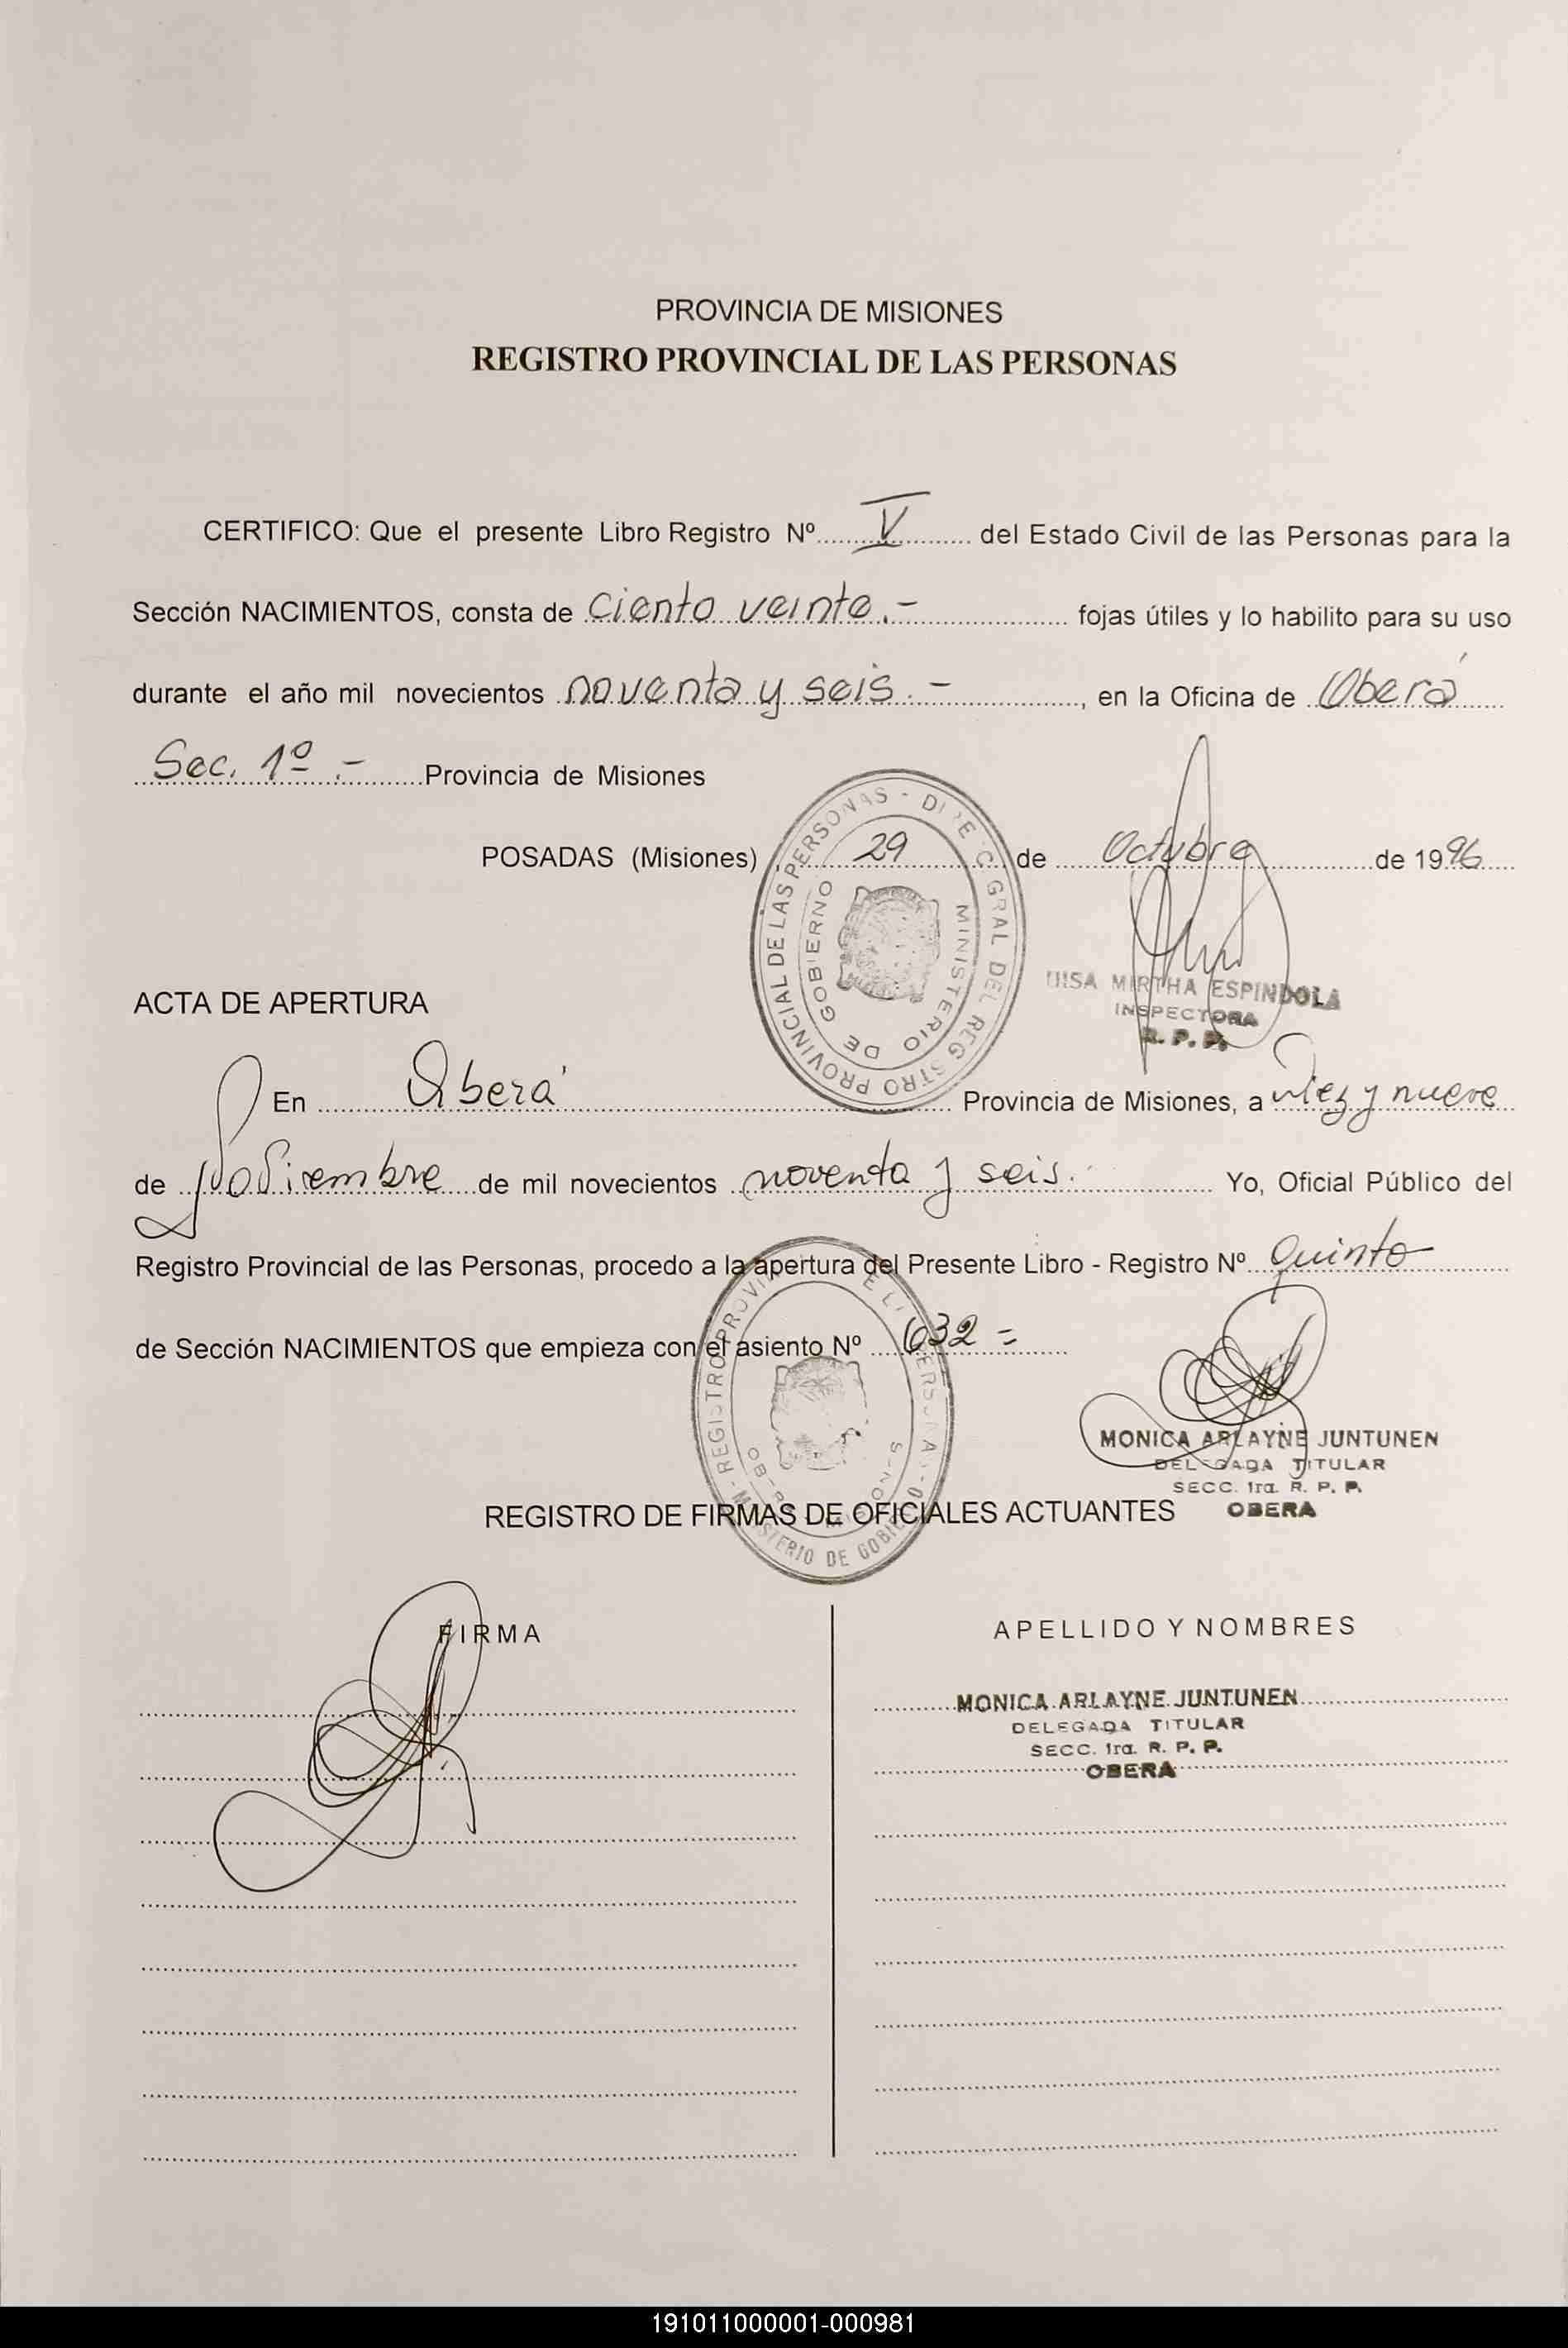 PROVINCIA DE MISIONES
REGISTRO PROVINCIAL DE LAS PERSONAS
CERTIFICO: Que el presente Libro Registro Nº V del Estado Civil de las Personas para la
Sección NACIMIENTOS, consta de Ciento veinte.- fojas útiles y lo habilito para su uso
durante el año mil novecientos noventa y seis.-, en la Oficina de Oberá
Sec. 1º.- Provincia de Misiones
POSADAS (Misiones) 29 de Octubre de 1996
MIRTHA ESPINDOLA
INSPECTORA
R. P. P.
ACTA DE APERTURA
En Oberá Provincia de Misiones, a diez y nueve
de de mil novecientos noventa y seis. Yo, Oficial Público del
Registro Provincial de las Personas, procedo a la apertura del Presente Libro - Registro Nº Quinto
de Sección NACIMIENTOS que empieza con el asiento Nº 632 =
MONICA ARLAYNE JUNTUNEN
DELEGADA TITULAR
SECC. 1ra. R. P. P.
OBERA
REGISTRO DE FIRMAS DE OFICIALES ACTUANTES
FIRMA
APELLIDO Y NOMBRES
MONICA ARLAYNE JUNTUNEN
DELEGADA TITULAR
SECC. 1ra. R. P. P.
OBERA
191011000001-000981